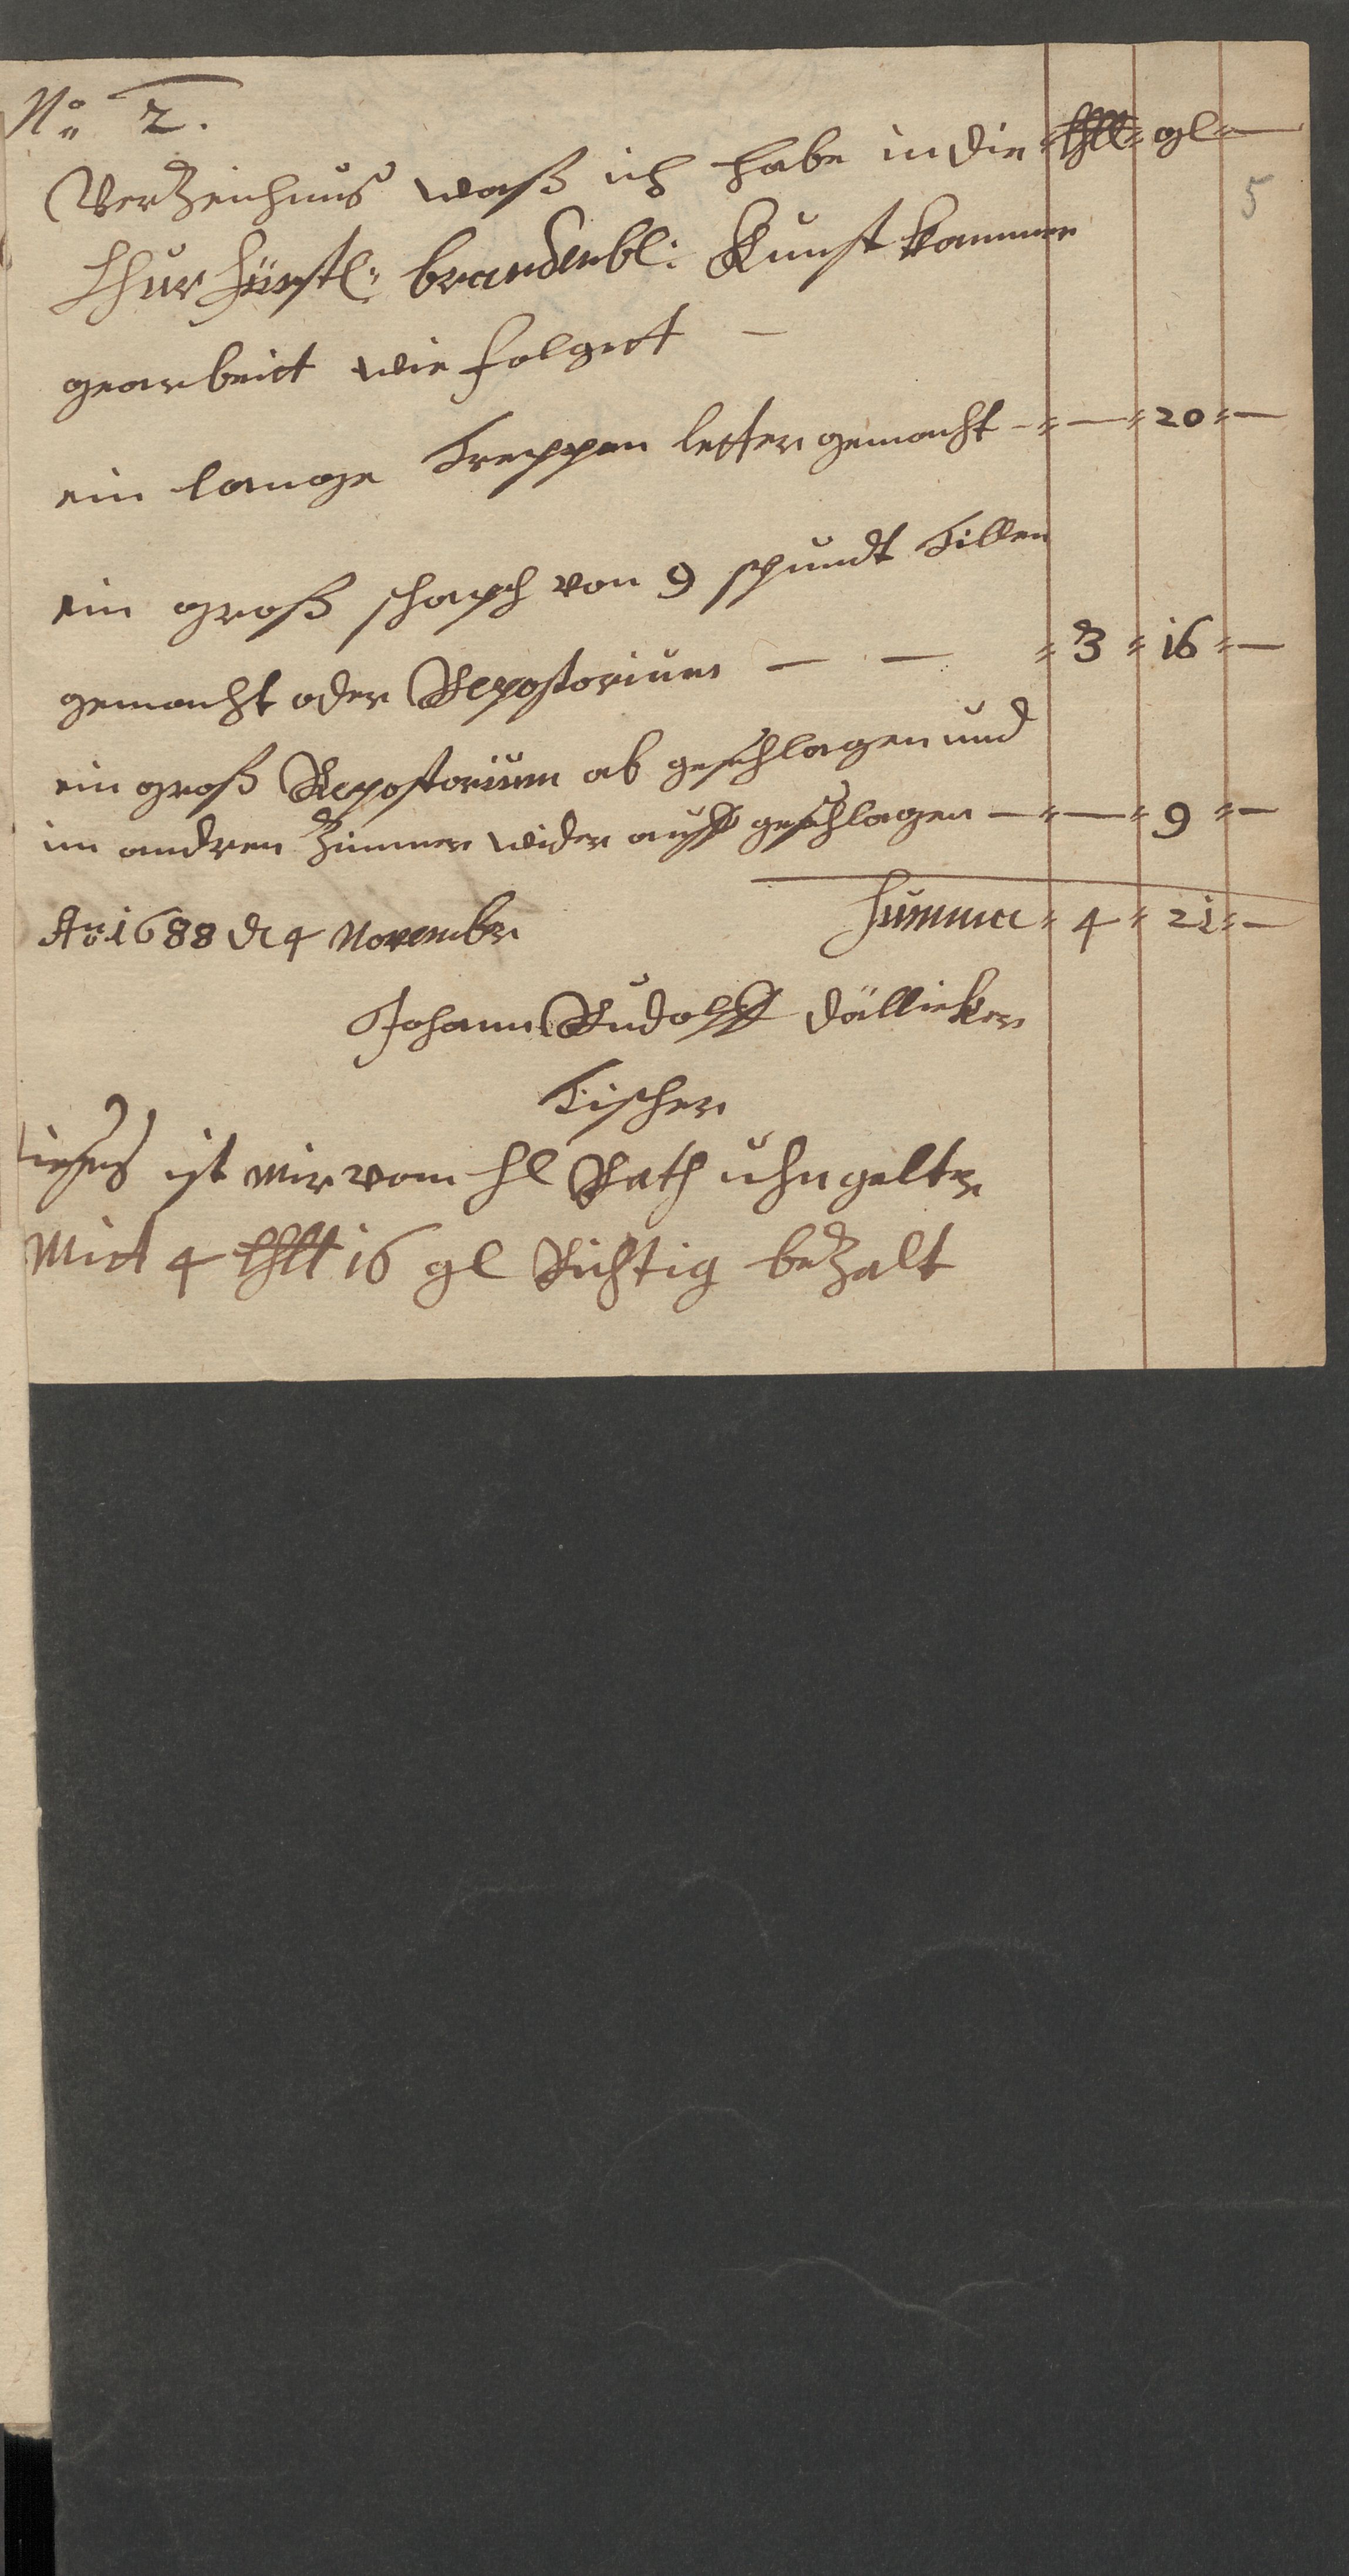 No 2.
VerZeichnus waß ich habe in die thll gl
5
Churfürstl: brandenbl: Kunst kammer
gearbeitt wie folgett —
ein lange Treppen letter gemacht — — 20 —
ein groß schapf von 9 spundt Dillen
gemacht oder Repostorium — — 3 16 —
ein groß Repostorium ab geschlagen und
im andren Zimmer wider auff geschlagen — — 9 —
Ao 1688 d 4 November Summa 4 21 —
Johann Rudolff Dälliker
Tischer
dieses ist mir vom hl Rath uhngelter
mitt 4 thll 16 gl Richtig beZalt